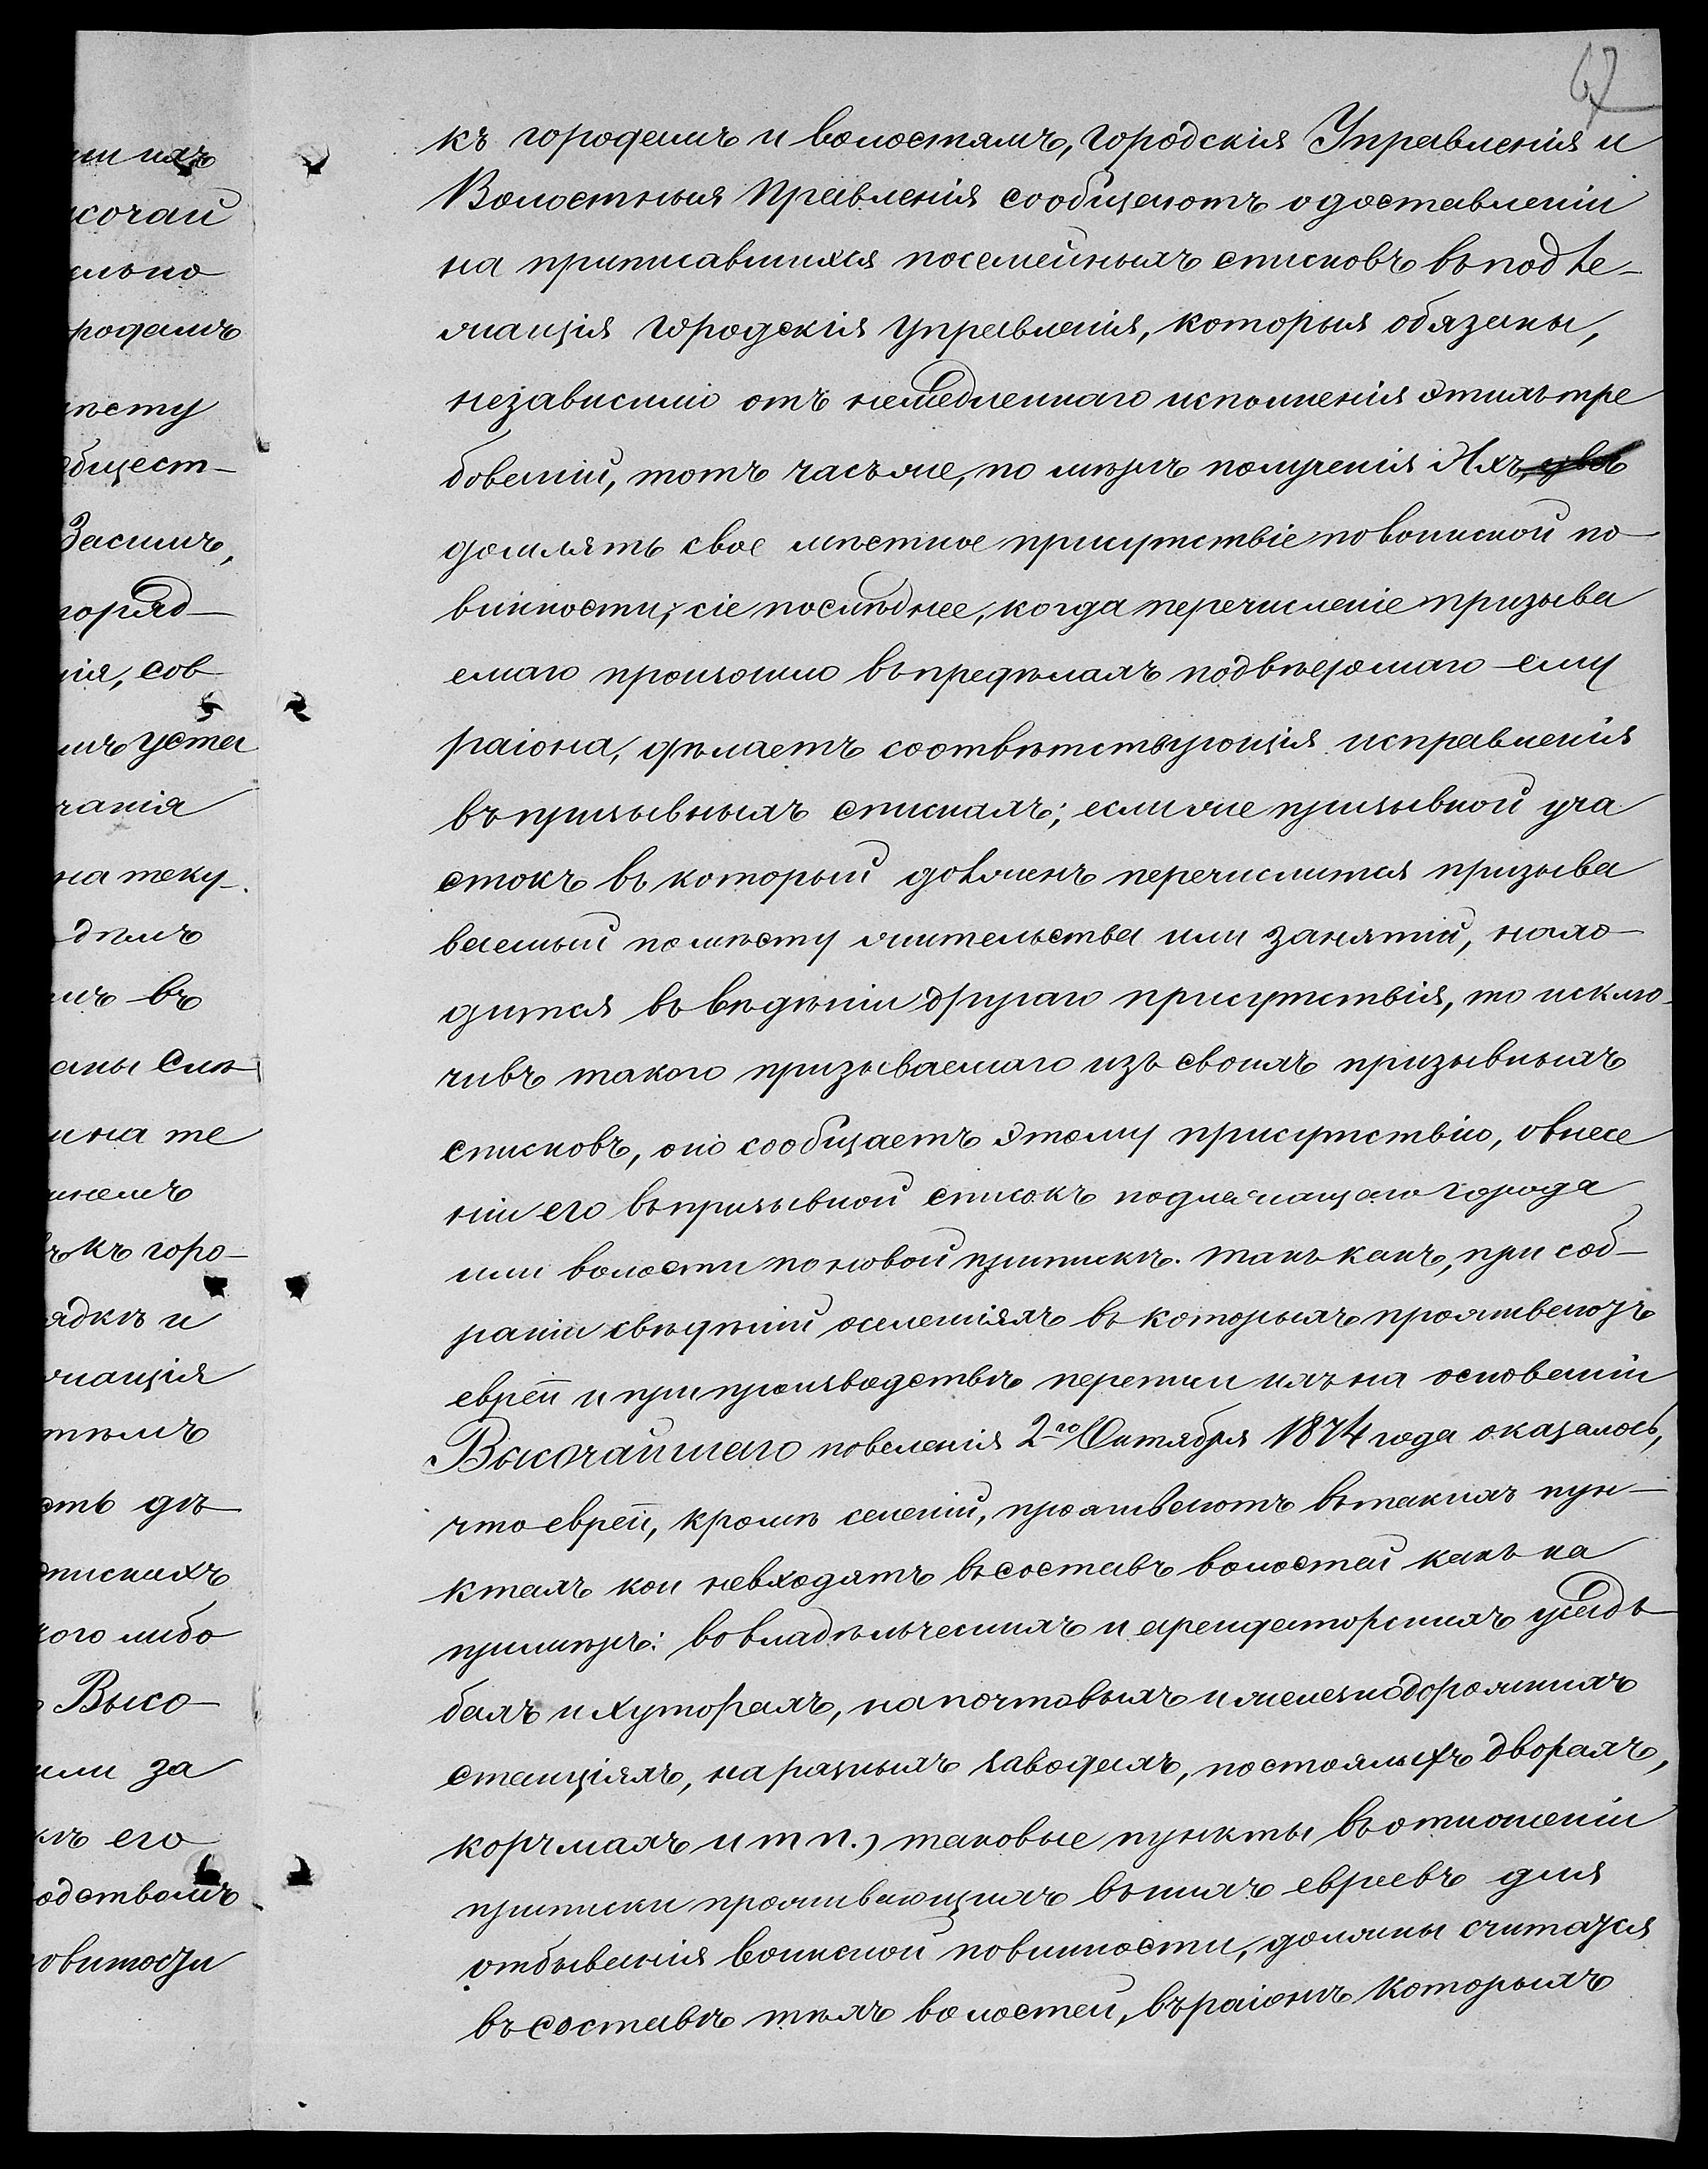 67
къ городамъ и волостямъ, городскія Управленія и
Волостныя Правленія сообщаютъ о доставленіи
на приписавшихся посемейныхъ списковъ въ подле-
жащія городскія управленія, которыя обязаны,
независимо отъ немедленнаго исполненія этихъ тре
бованій, тотъ часъ же, по мѣрѣ полученія Ихъ, увѣ
домлять свое мѣстное присутствіе по воинской по-
винности; сіе послѣднее, когда перечисленіе призыва
емаго произошло въ предѣлахъ подвѣдомаго ему
раіона, дѣлаетъ соотвѣтствующія исправленія
въ призывныхъ спискахъ; если же призывной уча
стокъ въ который долженъ перечислится призыва
ваемый по мѣсту жительства или занятій, нахо-
дится въ вѣдѣніи другаго присутствія, то исклю-
чивъ такого призываемаго изъ своихъ призывныхъ
списковъ, оно сообщаетъ этому присутствію, о внесе
ніи его въ призывной списокъ подлежащаго города
или волости по новой припискѣ. Такъ какъ, при соб-
раніи свѣдѣній о селеніяхъ въ которыхъ проживаютъ
евреи и при производствѣ переписи ихъ на основаніи
Высочайшаго повеленія 2го Октября 1874 года оказалось,
что евреи, кромѣ селеній, проживаютъ въ такихъ пун-
ктахъ кои не входятъ въ составъ волостей какъ на
примѣръ: во владѣльческихъ и арендаторскихъ усадь
бахъ и хуторахъ, на почтовыхъ и железнодорожныхъ
станціяхъ, на разныхъ заводахъ, постоялыхъ дворахъ,
корчмахъ и т п.) таковые пункты въ отношеніи
приписки проживающихъ въ нихъ евреевъ для
отбыванія воинской повинности, должны считатся
въ составѣ тѣхъ волостей, въ раіонѣ которыхъ